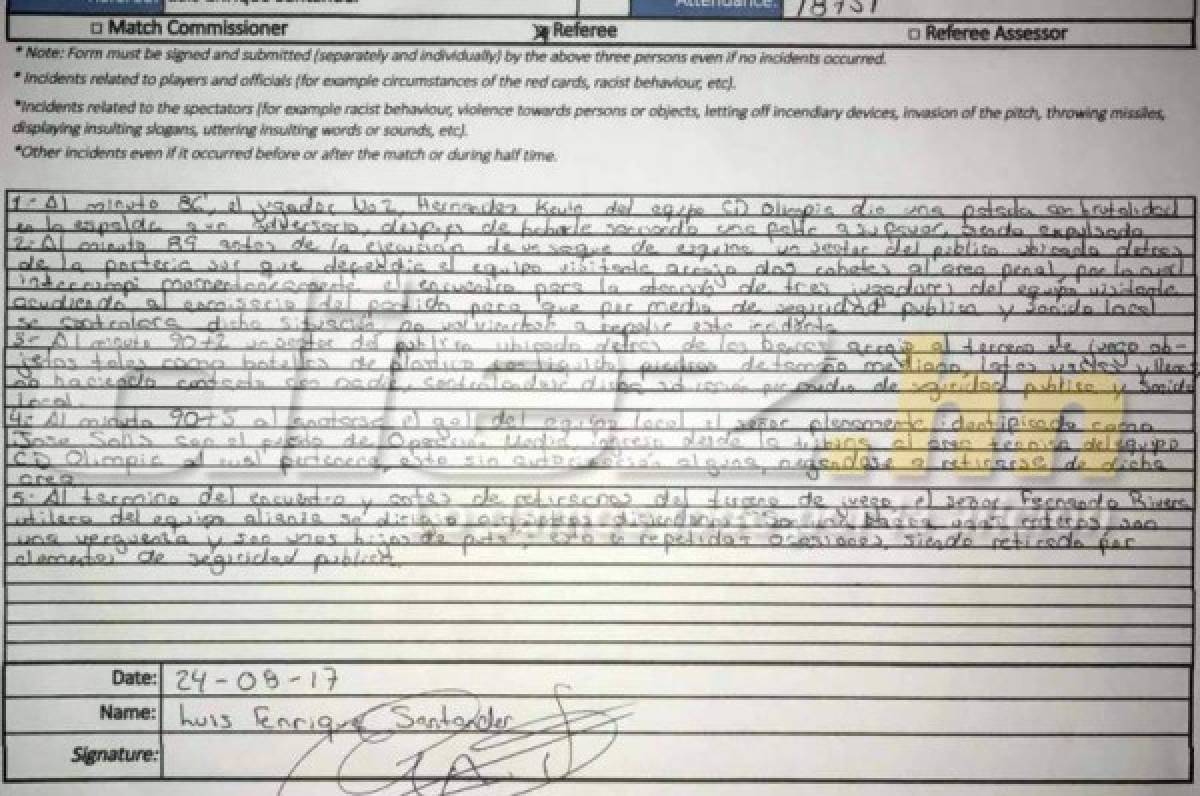 Attendance: 18757
Match Commissioner Referee Referee Assessor
* Note: Form must be signed and submitted (separately and individually) by the above three persons even if no incidents occurred.
* Incidents related to players and officials (for example circumstances of the red cards, racist behaviour, etc).
*Incidents related to the spectators (for example racist behaviour, violence towards persons or objects, letting off incendiary devices, invasion of the pitch, throwing missiles,
displaying insulting slogans, uttering insulting words or sounds, etc).
*Other incidents even if it occurred before or after the match or during half time.
1.- Al minuto 86', el jugador No 2, Hernandez Kevin del equipo CD Olimpia dio una patada con brutalidad
en la espalda adversario, despues de una falta a su favor, siendo expulsado
2.- Al minuto 89 antes de la ejecución de un saque de esquina un sector del publico ubicado detras
de la porteria sur que defendia el equipo visitante arrojo dos cohetes al area penal, por lo cual
interrumpi momentaneamente el encuentro para la atención de tres jugadores del equipo visitante
acudiendo al comisario del partido para que por medio de seguridad publica y sonido local
se controlara dicha situación no volviendose a repetir este incidente
3.- Al minuto 90+2 un sector del publico ubicado detras de las bancas arrojo al terreno de juego ob-
jetos tales como botellas de plastico con liquido, piedras de tamaño mediano, latas vacias y llenas
no haciendo contacto con nadie, controlandose dicha situación por medio de seguridad publica y sonido
local.
4.- Al minuto 90+5 al anotarse el gol del equipo local el señor plenamente identificado como
Jose Solis con el puesto de Media, ingreso desde la tribuna al area tecnica del equipo
CD Olimpia al cual pertenece, esto sin autorización alguna, negandose a retirarse de dicha
area
5.- Al termino del encuentro y antes de retirarnos del terreno de juego el señor Fernando Rivera
utilero del equipo alianza se dirigio a diciendo son
una verguenza y son unos hijos de puta", esto en repetidas ocasiones, siendo retirado por
elementos de seguridad publica.
diez.hn
Date: 24-08-17
Name: Luis Enrique Santander
Signature: